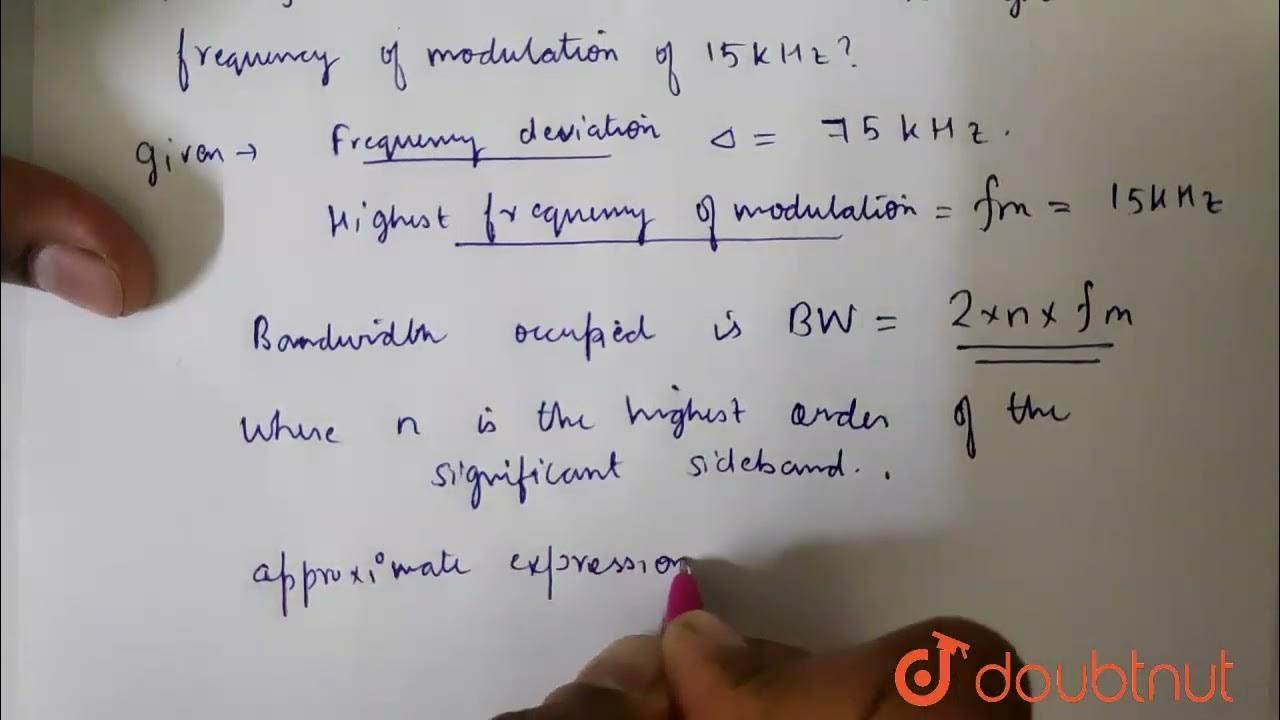 frequency of modulation of 15 kHz?
given → Frequency deviation Δ = 75 kHz.
Highest frequency of modulation = fm = 15 kHz
Bandwidth occupied is BW = 2×n×fm
where n is the highest order of the
significant sideband.
approximate expression
doubtnut